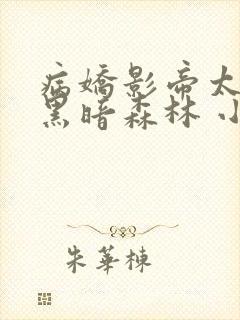 病嬌影帝太
黑暗森林 小
朱華棟